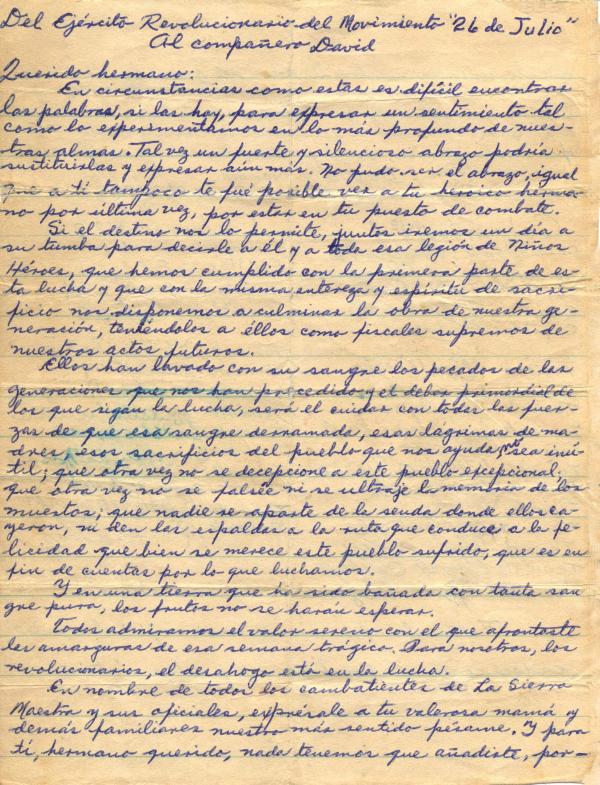 Del Ejército Revolucionario del Movimiento "26 de Julio"
Al compañero David
Querido hermano:
En circunstancias como estas es difícil encontrar
las palabras, si las hay, para expresar un sentimiento tal
como lo experimentamos en lo más profundo de nues-
tras almas. Tal vez un fuerte y silencioso abrazo podría
sustituirlas y expresar aún más. No pudo ser el abrazo, igual
que a ti tampoco te fué posible ver a tu heroico herma-
no por última vez, por estar en tu puesto de combate.
Si el destino nos lo permite, juntos iremos un día a
su tumba para decirle a él y a toda esa legión de Niños
Héroes, que hemos cumplido con la primera parte de es-
ta lucha y que con la misma entereza y espíritu de sacri-
ficio nos disponemos a culminar la obra de nuestra ge-
neración, teniéndolos a éllos como fiscales supremos de
nuestros actos futuros.
Ellos han lavado con su sangre los pecados de las
generaciones que nos han precedido y el deber primordial de
los que sigan la lucha, será el cuidar con todas las fuer-
zas de que esa sangre derramada, esas lágrimas de ma-
dres y esos sacrificios del pueblo que nos ayuda, no sea inú-
til; que otra vez no se decepcione a este pueblo excepcional;
que otra vez no se falsée ni se ultraje la memoria de los
muertos; que nadie se aparte de la senda donde ellos ca-
yeron, ni den las espaldas a la ruta que conduce a la fe-
licidad que bien se merece este pueblo sufrido, que es en
fin de cuentas por lo que luchamos.
Y en una tierra que ha sido bañada con tanta san
gre pura, los frutos no se harán esperar.
Todos admiramos el valor sereno con el que afrontaste
las amarguras de esa semana trágica. Para nosotros, los
revolucionarios, el desahogo está en la lucha.
En nombre de todos los combatientes de La Sierra
Maestra y sus oficiales, exprésale a tu valerosa mamá y
demás familiares nuestro más sentido pésame. Y para
ti, hermano querido, nada tenemos que añadirte, por-